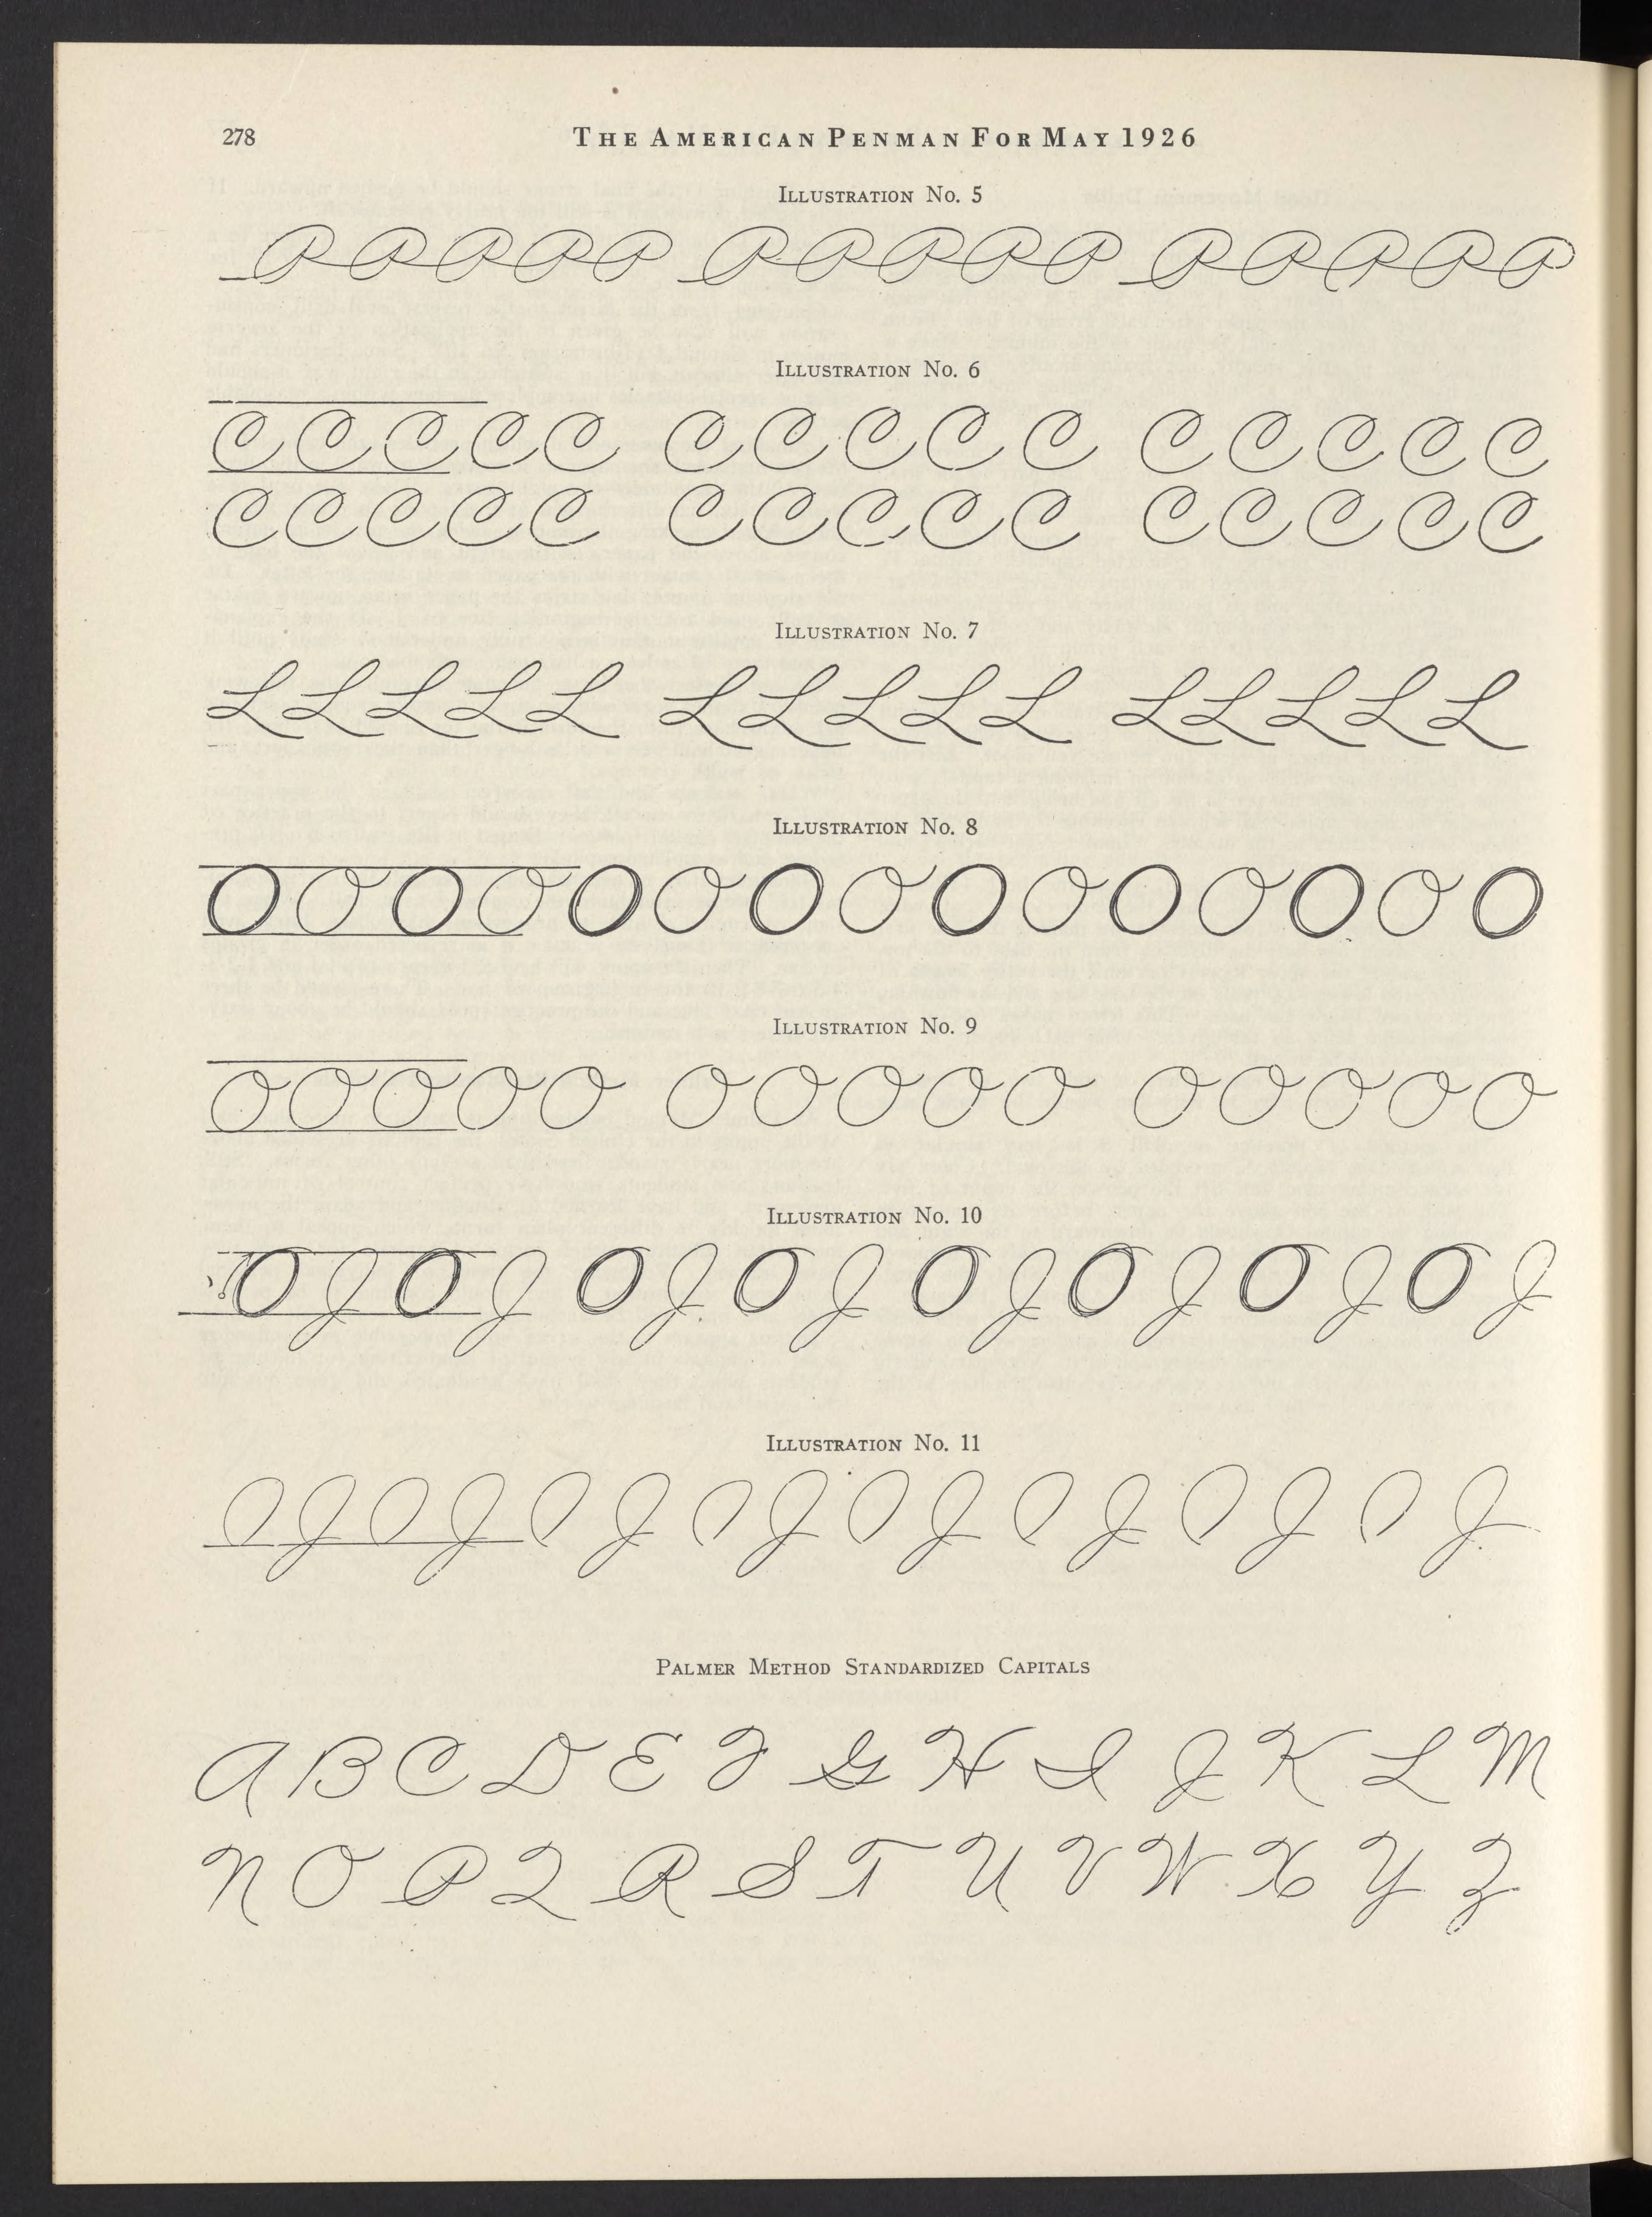 278
THE AMERICAN PENMAN FOR MAY 1926
ILLUSTRATION No. 5
P P P P P P P P P P P P P P P
ILLUSTRATION No. 6
C C C C C C C C C C C C C C C
C C C C C C C C C C C C C C C
ILLUSTRATION No. 7
L L L L L L L L L L L L L L L
ILLUSTRATION No. 8
O O O O O O O O O O O O O O O
ILLUSTRATION No. 9
O O O O O O O O O O O O O O O
ILLUSTRATION No. 10
O J O J O J O J O J O J O J O J
ILLUSTRATION No. 11
J J J J J J J J
PALMER METHOD STANDARDIZED CAPITALS
A B C D E F G H I J K L M
N O P Q R S T U V W X Y Z